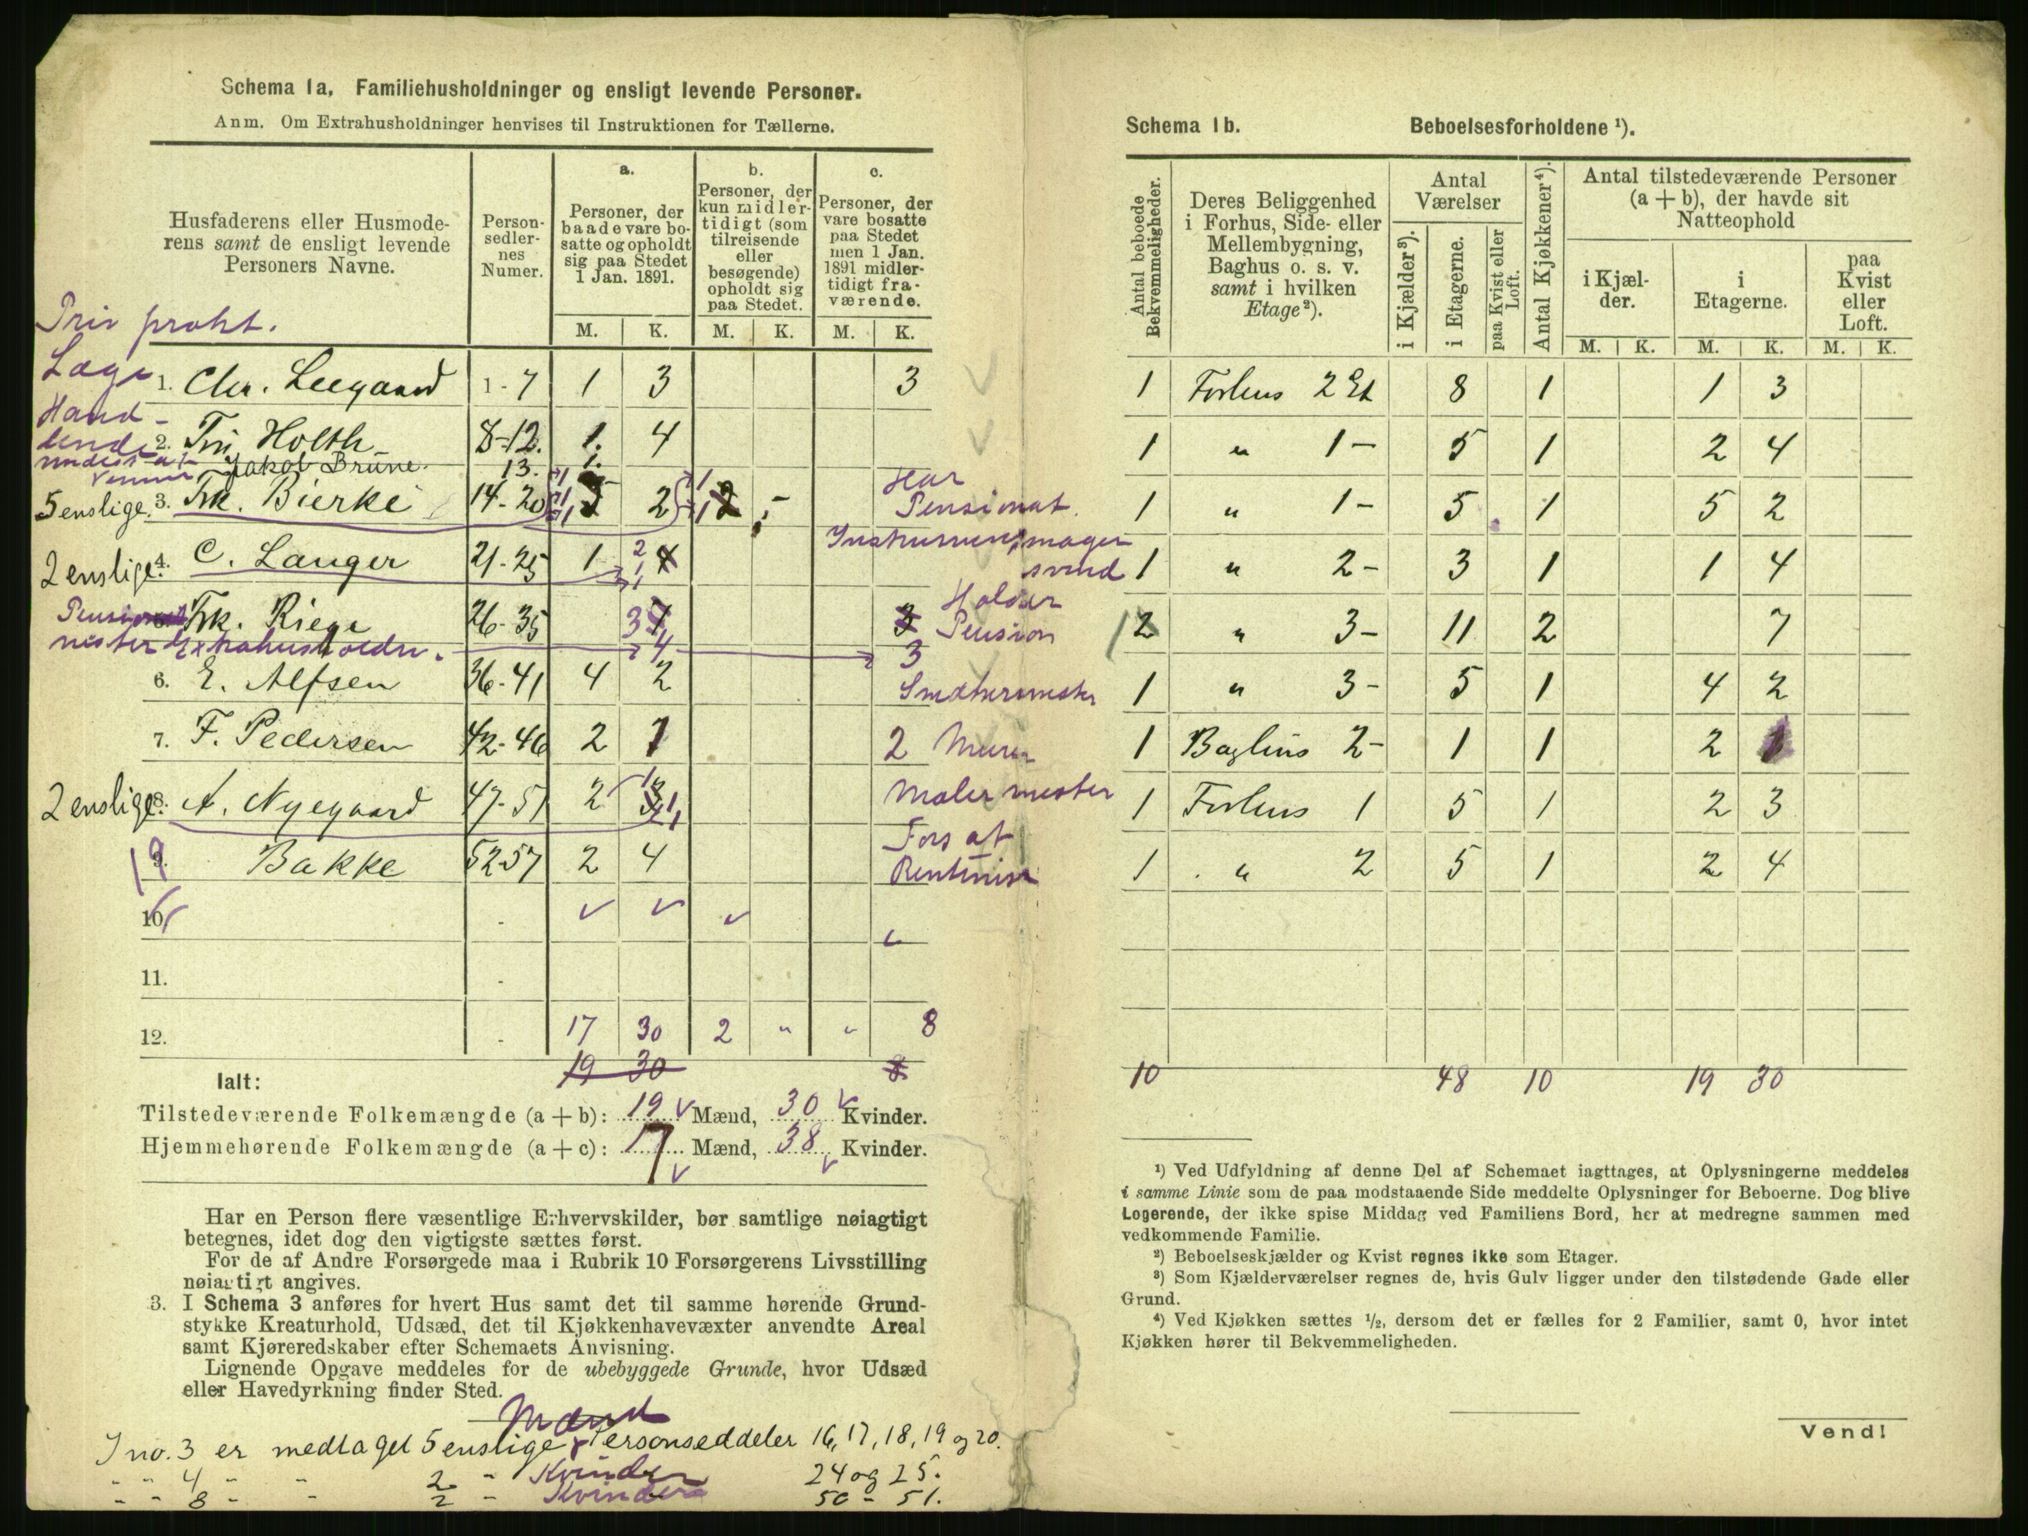 Schema 1a. Familiehusholdninger og ensligt levende Personer.
Anm. Om Extrahusholdninger henvises til Instruktionen for Tællerne.
Husfaderens eller Husmode-
rens samt de ensligt levende
Personers Navne.
Person-
sedler-
nes
Numer.
a.
Personer, der
baade vare bo-
satte og opholdt
sig paa Stedet
1 Jan. 1891.
b.
Personer, der
kun midler-
tidigt (som
tilreisende
eller
besøgende)
opholdt sig
paa Stedet.
c.
Personer, der
vare bosatte
paa Stedet
men 1 Jan.
1891 midler-
tidigt fra-
værende.
M. K. M. K. M. K.
Priv prakt.
Læge
1. Chr. Leegaard 1-7 1 3 3
Hand-
lende
2. Frk. Holth 8-12. 1. 4
Jakob Brüne. 13. 1.
5 enslige. 3. Frk. Bierke 14-20 5 2 2 -
Har
Pensionat.
2 enslige. 4. C. Langer 21-25 1 4
Instrumentmager
svend
5. Frk. Riege 26-35 7 3
Holder
Pension
Extrahusholdn. 4 3
6. E. Alfsen 36-41 4 2
7. F. Pedersen 42-46 2 1 2 Murer
2 enslige. 8. A. Nyegaard 47-51 2 3 Malermester
9. Bakke 52-57 2 4
Fors at
10.
11.
12. 17 30 2 „ „ 8
19 30 8
Ialt:
Tilstedeværende Folkemængde (a + b): 19 Mænd, 30 Kvinder.
Hjemmehørende Folkemængde (a + c): 17 Mænd, 38 Kvinder.
Har en Person flere væsentlige Erhvervskilder, bør samtlige nøiagtigt
betegnes, idet dog den vigtigste sættes først.
For de af Andre Forsørgede maa i Rubrik 10 Forsørgerens Livsstilling
nøiagtigt angives.
3. I Schema 3 anføres for hvert Hus samt det til samme hørende Grund-
stykke Kreaturhold, Udsæd, det til Kjøkkenhavevæxter anvendte Areal
samt Kjøreredskaber efter Schemaets Anvisning.
Lignende Opgave meddeles for de ubebyggede Grunde, hvor Udsæd
eller Havedyrkning finder Sted.
Mænd
I no. 3 er medtaget 5 enslige Personseddeler 16, 17, 18, 19 og 20.
" " 4 " " 2 " Kvinder 24 og 25.
" " 8 " " 2 " Kvinder 50 - 51.
Schema 1b. Beboelsesforholdene ¹).
Antal beboede
Bekvemmeligheder.
Deres Beliggenhed
i Forhus, Side- eller
Mellembygning,
Baghus o. s. v.
samt i hvilken
Etage²).
Antal
Værelser
i Kjælder³).
i Etagerne.
paa Kvist eller
Loft.
Antal Kjøkkener⁴).
Antal tilstedeværende Personer
(a + b), der havde sit
Natteophold
i Kjæl-
der.
i
Etagerne.
paa
Kvist
eller
Loft.
M. K. M. K. M. K.
1 Forhus 2 Et 8 1 1 3
1 „ 1- 5 1 2 4
1 „ 1- 5 1 5 2
1 „ 2- 3 1 1 4
2 „ 3- 11 2 7
1 „ 3- 5 1 4 2
1 Baghus 2- 1 1 2 1
1 Forhus 1 5 1 2 3
1 „ 2 5 1 2 4
10 48 10 19 30
¹) Ved Udfyldning af denne Del af Schemaet iagttages, at Oplysningerne meddeles
i samme Linie som de paa modstaaende Side meddelte Oplysninger for Beboerne. Dog blive
Logerende, der ikke spise Middag ved Familiens Bord, her at medregne sammen med
vedkommende Familie.
²) Beboelseskjælder og Kvist regnes ikke som Etager.
³) Som Kjælderværelser regnes de, hvis Gulv ligger under den tilstødende Gade eller
Grund.
⁴) Ved Kjøkken sættes ½, dersom det er fælles for 2 Familier, samt 0, hvor intet
Kjøkken hører til Bekvemmeligheden.
Vend!